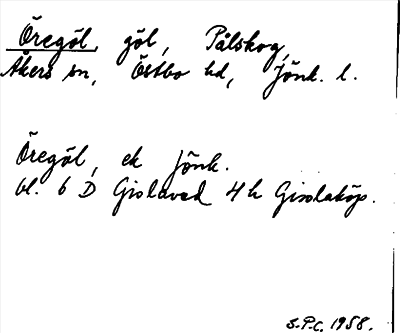 Öregöl, göl, Pålskog,
Åkers sn, Östbo hd, Jönk. l.
Öregöl, ek Jönk.
bl. 6 D Gislaved 4 h Gisslaköp.
S.P.C. 1958.